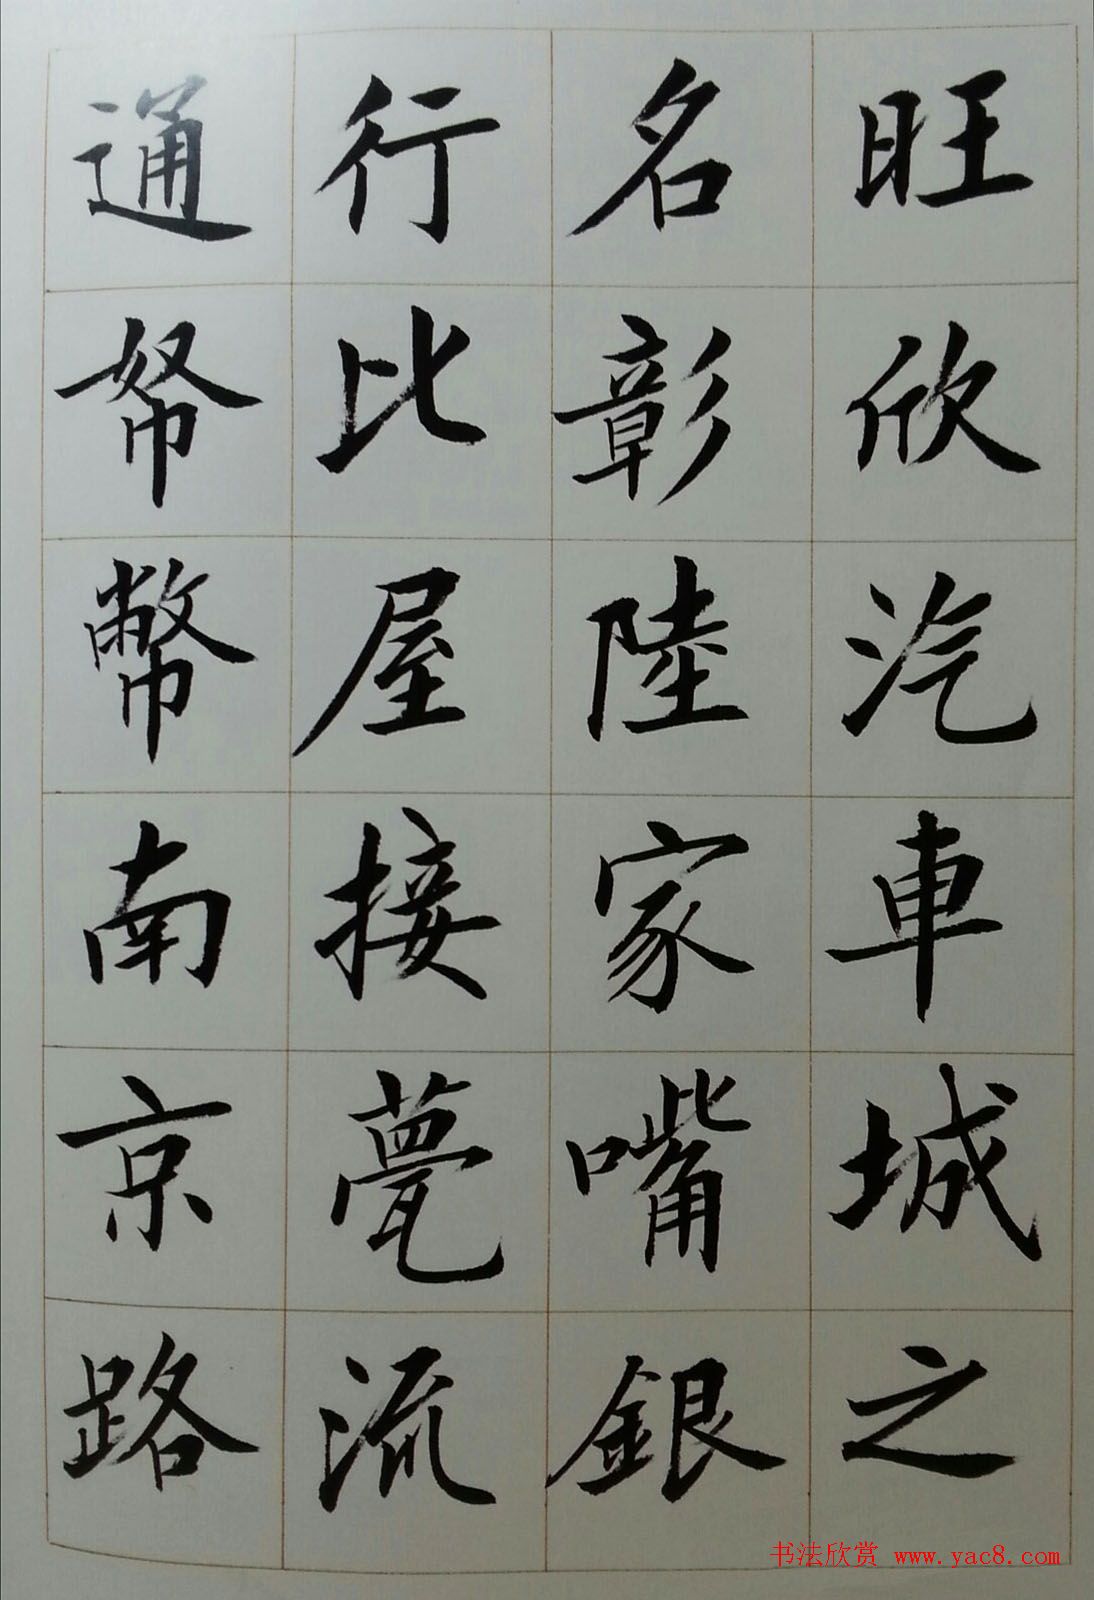 旺欣汽車城之
名彰陸家嘴銀
行比屋接甍流
通帑幣南京路
书法欣赏 www.yac8.com